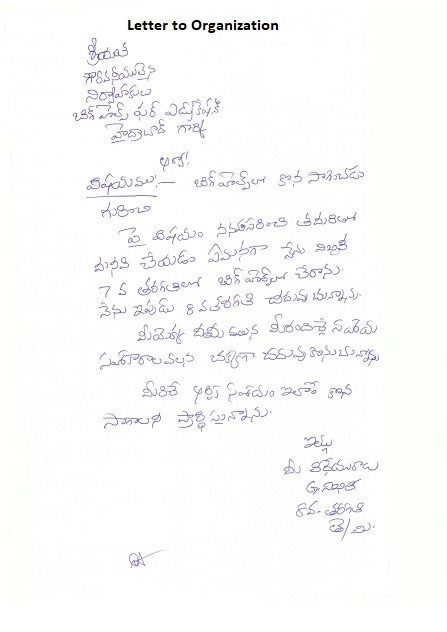 Letter to Organization
శ్రీయుత
గౌరవనీయులైన
నిర్వాహకులు
బిగ్ హెల్ప్ ఫర్ ఎడ్యుకేషన్
హైద్రాబాద్ గార్కి
ఆర్యా!
విషయము:- బిగ్ హెల్ప్‌లో కొన సాగించుట
గురించి
పై విషయం ననుసరించి తమరితో
మనవి చేయడం ఏమనగా నేను
7 వ తరగతిలో బిగ్ హెల్ప్‌లో చేరాను.
నేను ఇపుడు 8 వ తరగతి చదువు చున్నాను.
మీయొక్క మీరందిస్తే సహాయ
సహకారాలవలన చక్కగా చదువు కొనుచున్నాను
మీరిచే ఆర్థిక సహాయం ఇలాగే కొన
సాగాలని ప్రార్థిస్తున్నాను.
ఇట్లు
మీ విధేయురాలు
G. నిఖిత
8వ-తరగతి
తె/మీ.